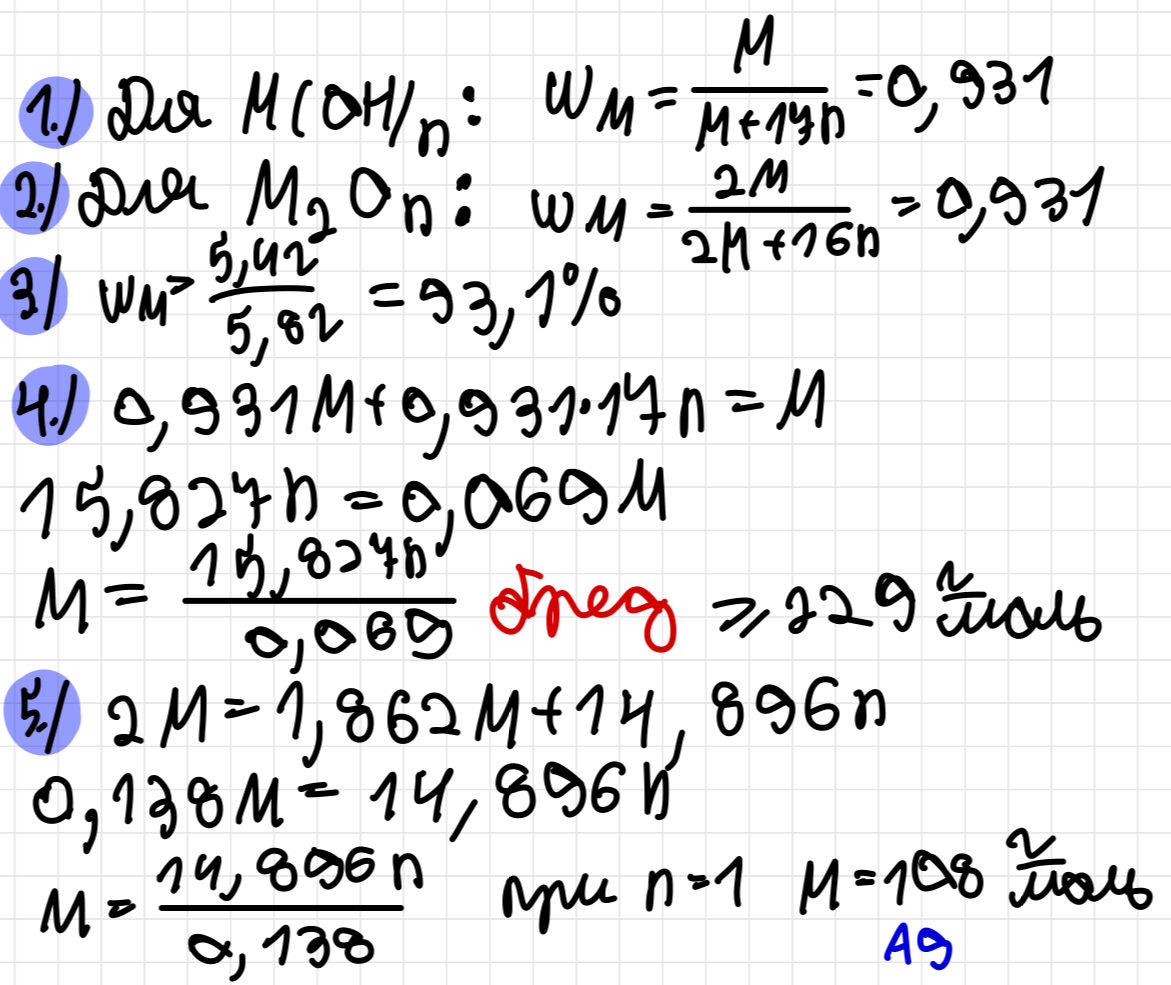 1.) Для M(OH)n: wM = M/(M+17n) = 0,931
2.) Для M2On: wM = 2M/(2M+16n) = 0,931
3) wM = 5,42/5,82 = 93,1%
4.) 0,931M+0,931·17n = M
15,827n = 0,069M
M = 15,827n/0,069 бред ⩾ 229 г/моль
5.) 2M = 1,862M+14,896n
0,138M = 14,896n
M = 14,896n/0,138 при n=1 M=108 г/моль
Ag